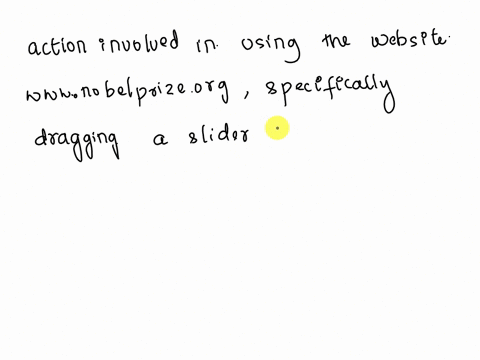 action involved in using the website.
www.nobelprize.org, specifically
dragging a slider